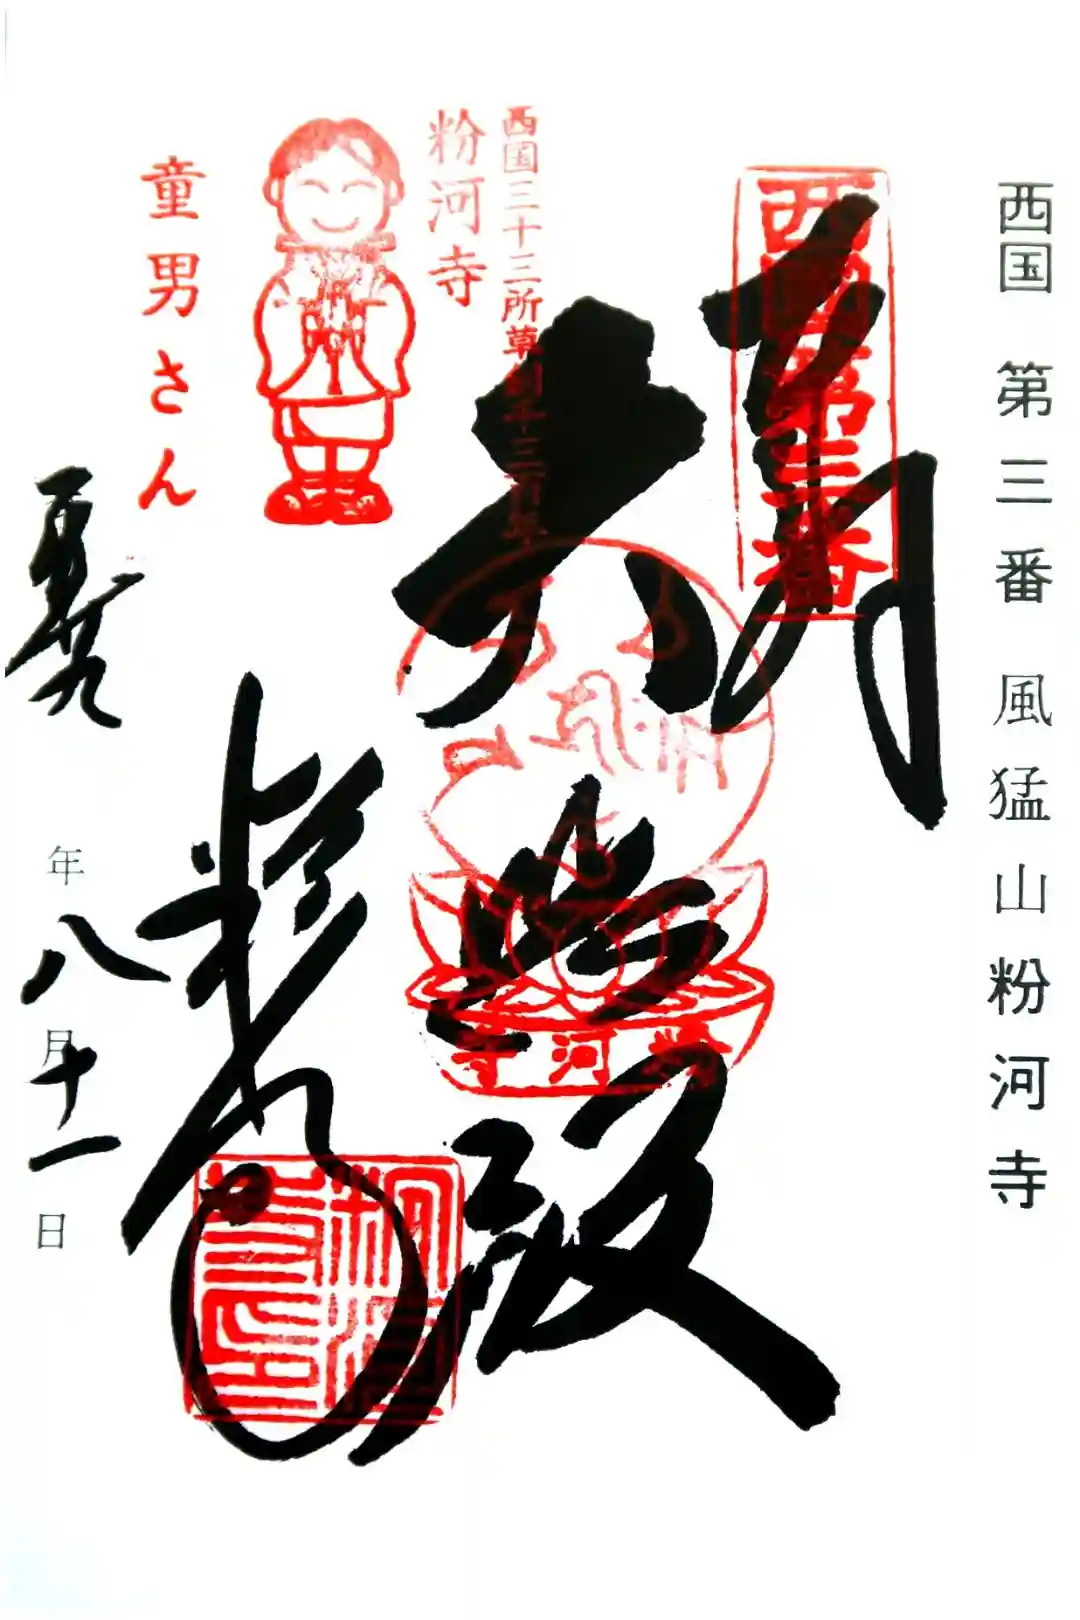 西国 第三番 風猛山 粉河寺
西国第三番
奉拝
大悲殿
粉河寺
西国三十三所草創千三百年
粉河寺
粉河寺
童男さん
粉河寺印
年八月十一日